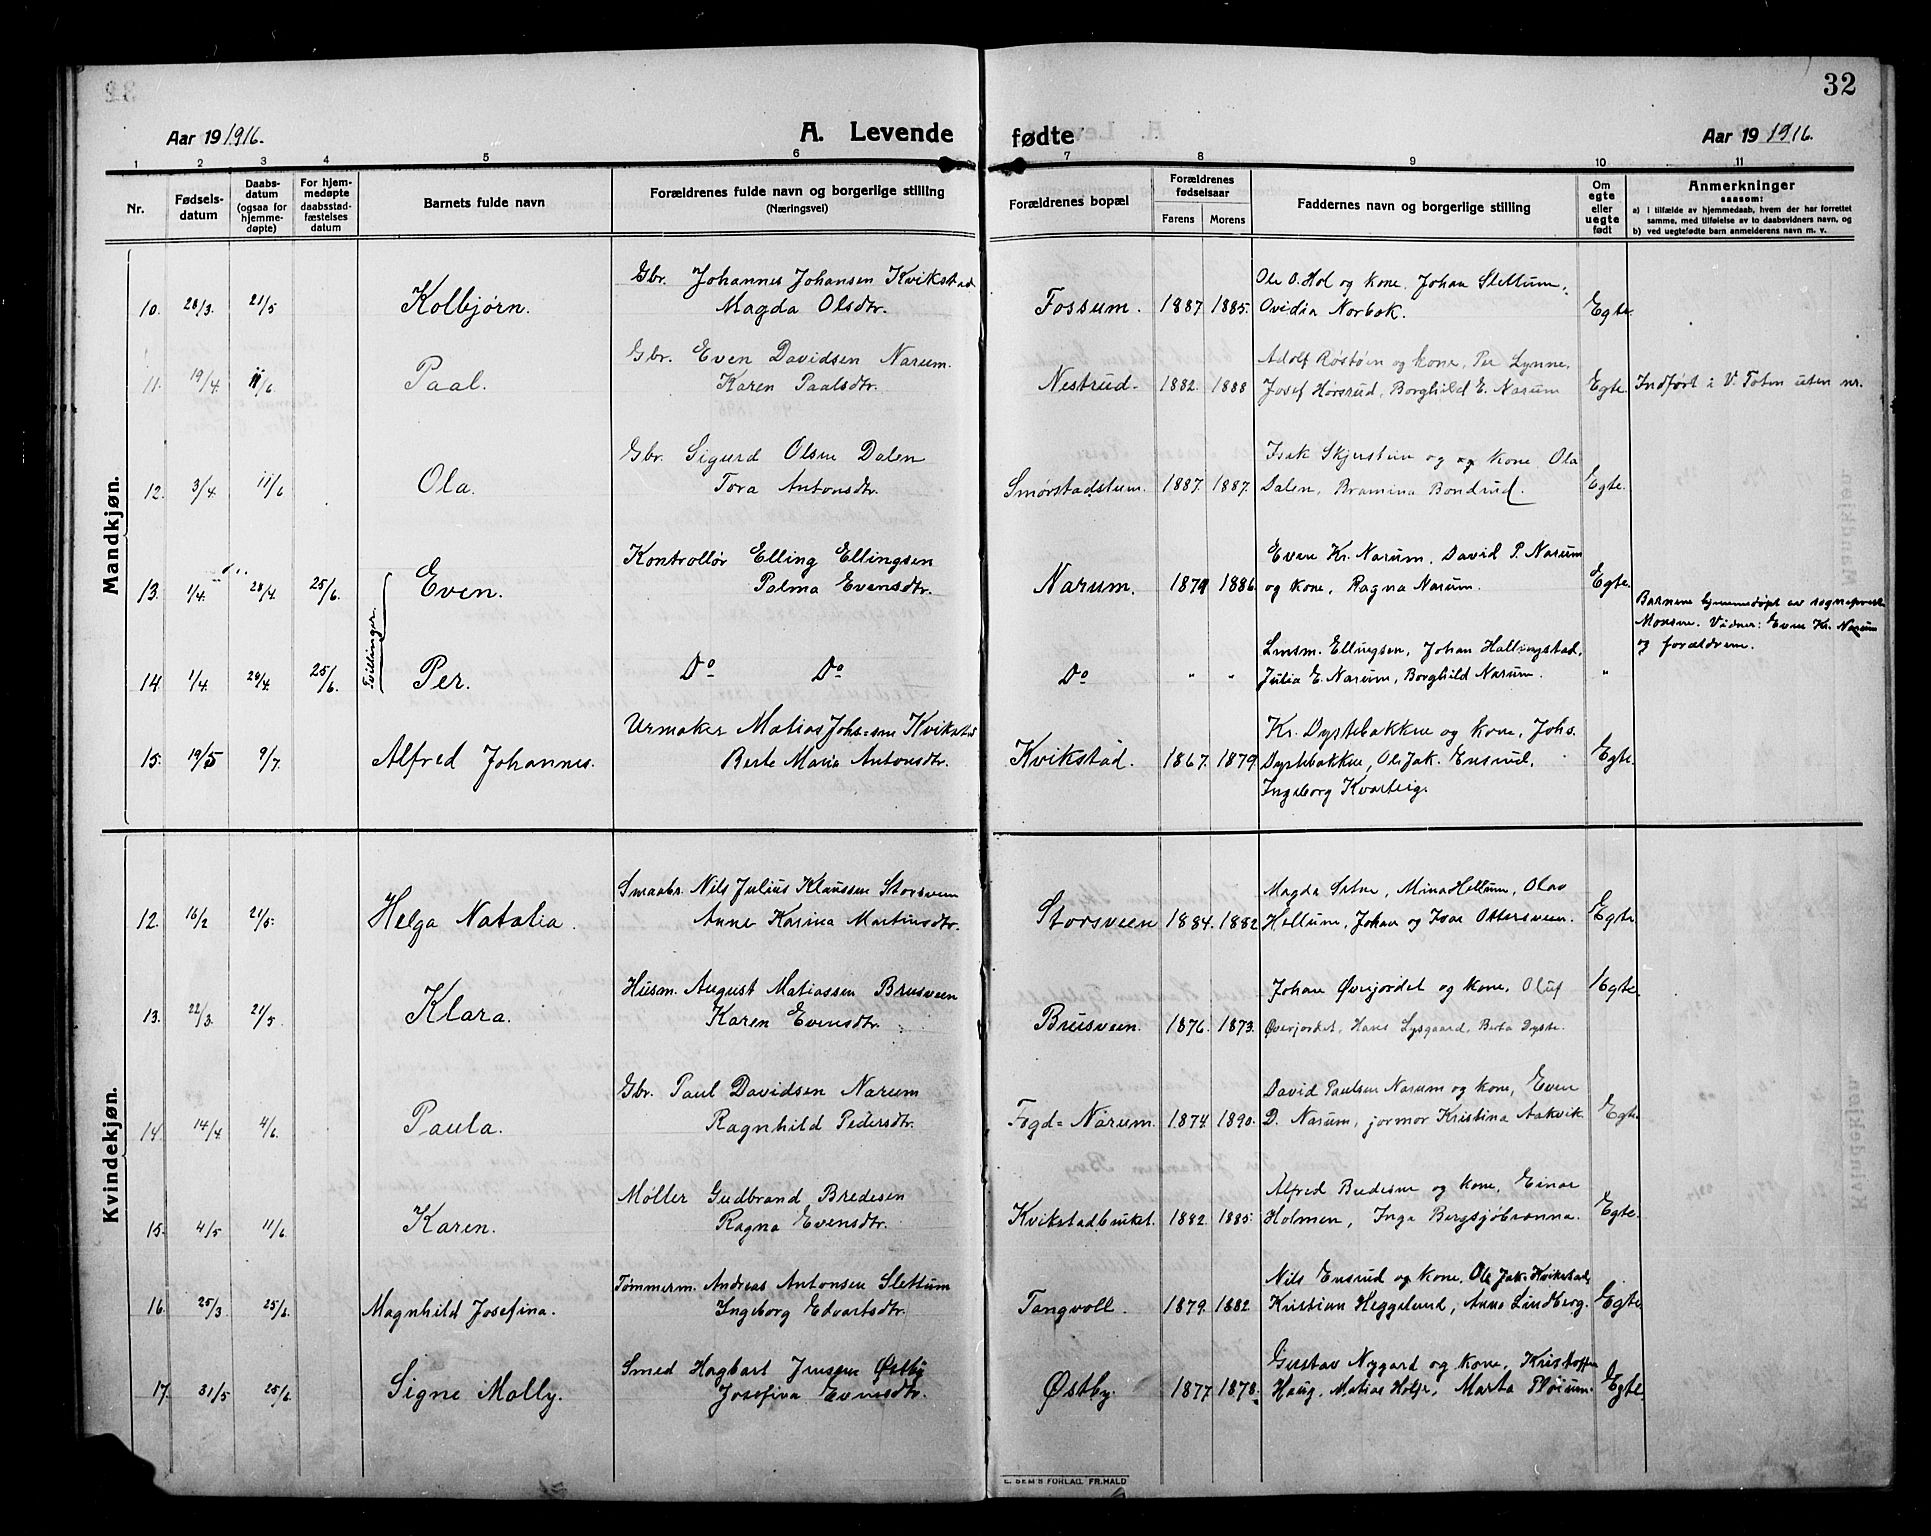 32
Aar 19 1916.
A. Levende fødte
Aar 19 1916.
1 2 3 4 5 6 7 8 9 10 11
Nr.
Fødsels-
datum
Daabs-
datum
(ogsaa for
hjemme-
døpte)
For hjem-
medøpte
daabsstad-
fæstelses
datum
Barnets fulde navn
Forældrenes fulde navn og borgerlige stilling
(Næringsvei)
Forældrenes bopæl
Forældrenes
fødselsaar
Farens Morens
Faddernes navn og borgerlige stilling
Om
egte
eller
uegte
født
Anmerkninger
saasom:
a) i tilfælde av hjemmedaab, hvem der har forrettet
samme, med tilføielse av to daabsvidners navn, og
b) ved uegtefødte barn anmelderens navn m. v.
Mandkjøn.
Gbr. Johannes Johansen Kvikstad Ole O. Hol og kone, Johan Slettum,
10. 28/3. 21/5 Kolbjørn. Magda Olsdtr. Fossum. 1887 1885. Ovidia Norbak. Egte.
Gbr. Even Davidsen Narum. Adolf Røstøen og kone, Per Lynne,
11. 19/4. 11/6 Paal. Karen Paalsdtr. Nestrud. 1882. 1888 Josef Horsrud, Borghild E. Narum Egte. Indført i V. Toten uten nr.
Gbr. Sigurd Olsen Dalen Isak Skjerstein og og kone, Ola
12. 3/4 11/6 Ola. Tora Antonsdtr. Smørstadstuen. 1887. 1887. Dalen, Bramina Bondrud. Egte.
Kontrollør Elling Ellingsen Even Kr. Narum, David P. Narum
13. 1/4. 28/4. 25/6. Even. Palma Evensdtr. Narum. 1879 1886. og kone, Ragna Narum. Egte.
Tvillinger
Barnene hjemmedøpt av sogneprest
Monsen. Vidner: Even Kr. Narum
og forældrene.
Lensm. Ellingsen, Johan Hallingstad,
14. 1/4. 28/4. 25/6. Per. Do Do Do " " Julia E. Narum, Borghild Narum. "
Urmaker Matias Johs=sen Kvikstad Kr. Dystebakken og kone, Johs.
15. 19/5 9/7. Alfred Johannes. Berte Maria Antonsdtr. Kvikstad. 1867. 1879 Dystebakken, Ole Jak. Ensrud, Egte.
Ingeborg Kvarteig.
Kvindekjøn.
Smaabr. Nils Julius Klaussen Storsveen Magda Satne, Mina Hellum, Olav
12. 16/2 21/5. Helga Natalia. Anne Karina Martinsdtr. Storsveen 1884. 1882 Hellum, Johan og Ivar Ottersveen. Egte
Husm. August Matiassen Brusveen Johan Øverjordet og kone, Oluf Egte.
13. 22/3. 21/5 Klara. Karen Evensdtr. Brusveen. 1876. 1873. Øverjordet, Hans Lysgaard, Berta Dyste.
Gbr. Paul Davidsen Narum David Paulsen Narum og kone, Even
14. 14/4. 4/6. Paula. Ragnhild Pedersdtr. Fogd=Narum. 1874. 1890. D. Narum, jormor Kristina Aakvik Egte
Møller Gudbrand Bredesen Alfred Bredesen og kone, Einar
15. 4/5 11/6. Karen. Ragna Evensdtr. Kvikstadbruket. 1882. 1885. Holmen, Inga Bergsjøbrænna. Egte.
Tømmerm. Andreas Antonsen Slettum Nils Ensrud og kone, Ole Jak. Kvikstad,
16. 25/3. 25/6. Magnhild Josefina. Ingeborg Edvartsdtr. Tangvoll. 1879. 1882. Kristian Heggelund, Anna Lindberg. Egte.
Smed Hagbart Jensen Østby Gustav Nygard og kone, Kristoffer
17. 31/5 25/6. Signe Molly. Josefina Evensdtr. Østby. 1877. 1878. Haug, Matias Holje, Marta Pløium. Egte.
E. SEM'S FORLAG. FR.HALD